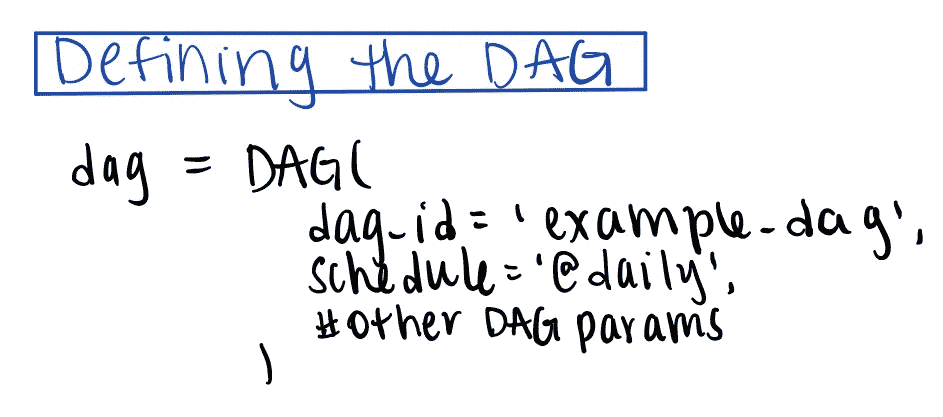 Defining the DAG
dag = DAG(
dag_id = 'example_dag',
schedule = '@daily',
#other DAG params
)